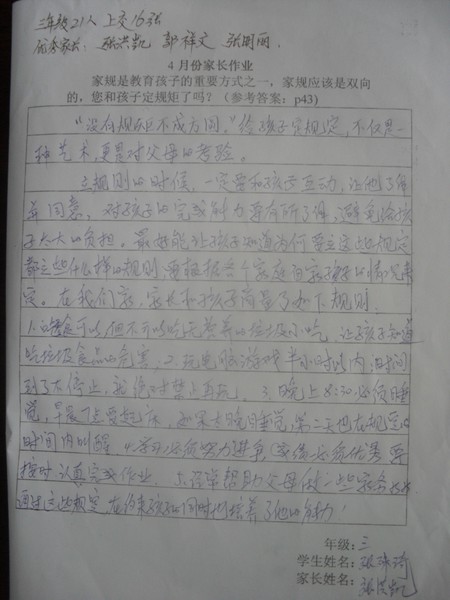 三年级21人 上交16张
优秀家长: 张洪凯 郭祥文 张明丽
4 月份家长作业
家规是教育孩子的重要方式之一，家规应该是双向
的，您和孩子定规矩了吗？(参考答案：p43)
"没有规矩不成方圆。"给孩子定规定，不仅是一
种艺术，更是对父母的考验。
立规则的时候，一定要和孩子互动，让他了解
并同意。对孩子的完成能力要有所了解，避免给孩
子太大的负担。最好能让孩子知道为何要立这些规定
都立些什么样的规则，要根据每个家庭自家孩子的情况来
定。在我们家，家长和孩子商量了如下规则。
1.吃零食可以但不可以吃无营养的垃圾小吃，让孩子知道
吃垃圾食品的危害，2.玩电脑游戏半小时以内，时间
到了不停止，就绝对禁止再玩。3.晚上8:30必须睡
觉，早晨7点要起床，如果太晚睡觉，第二天也在规定的
时间内叫醒 4.学习必须努力进争，成绩必须优秀 要
按时认真完成作业。5.经常帮助父母做一些家务
通过这些规定在约束孩子的同时也培养了他的能力！
年级：三
学生姓名：张
家长姓名：张洪凯